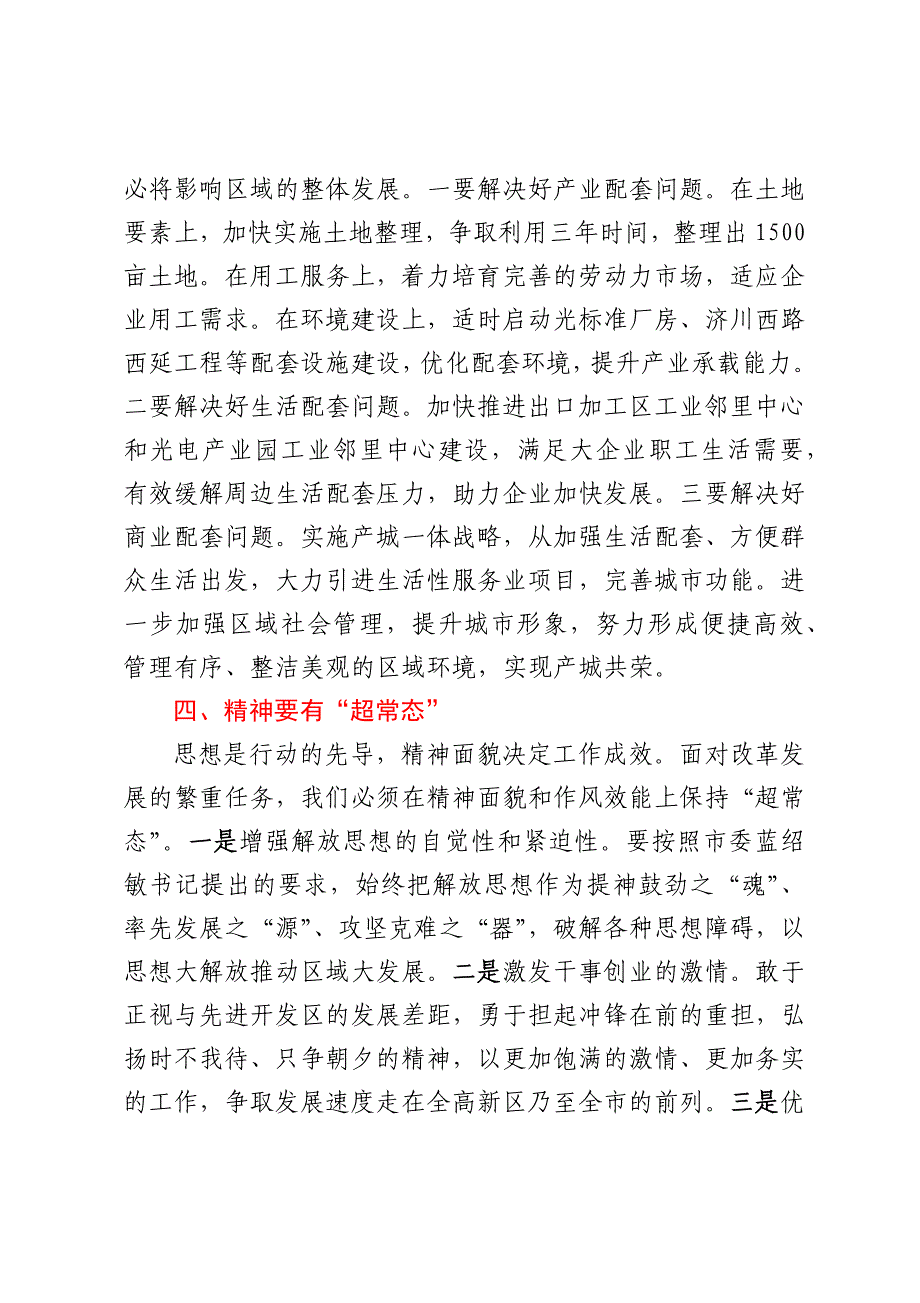 必将影响区域的整体发展。一要解决好产业配套问题。在土地
要素上，加快实施土地整理，争取利用三年时间，整理出 1500
亩土地。在用工服务上，着力培育完善的劳动力市场，适应企
业用工需求。在环境建设上，适时启动光标准厂房、济川西路
西延工程等配套设施建设，优化配套环境，提升产业承载能力。
二要解决好生活配套问题。加快推进出口加工区工业邻里中心
和光电产业园工业邻里中心建设，满足大企业职工生活需要，
有效缓解周边生活配套压力，助力企业加快发展。三要解决好
商业配套问题。实施产城一体战略，从加强生活配套、方便群
众生活出发，大力引进生活性服务业项目，完善城市功能。进
一步加强区域社会管理，提升城市形象，努力形成便捷高效、
管理有序、整洁美观的区域环境，实现产城共荣。
四、精神要有“超常态”
思想是行动的先导，精神面貌决定工作成效。面对改革发
展的繁重任务，我们必须在精神面貌和作风效能上保持“超常
态”。一是增强解放思想的自觉性和紧迫性。要按照市委蓝绍
敏书记提出的要求，始终把解放思想作为提神鼓劲之“魂”、
率先发展之“源”、攻坚克难之“器”，破解各种思想障碍，以
思想大解放推动区域大发展。二是激发干事创业的激情。敢于
正视与先进开发区的发展差距，勇于担起冲锋在前的重担，弘
扬时不我待、只争朝夕的精神，以更加饱满的激情、更加务实
的工作，争取发展速度走在全高新区乃至全市的前列。三是优